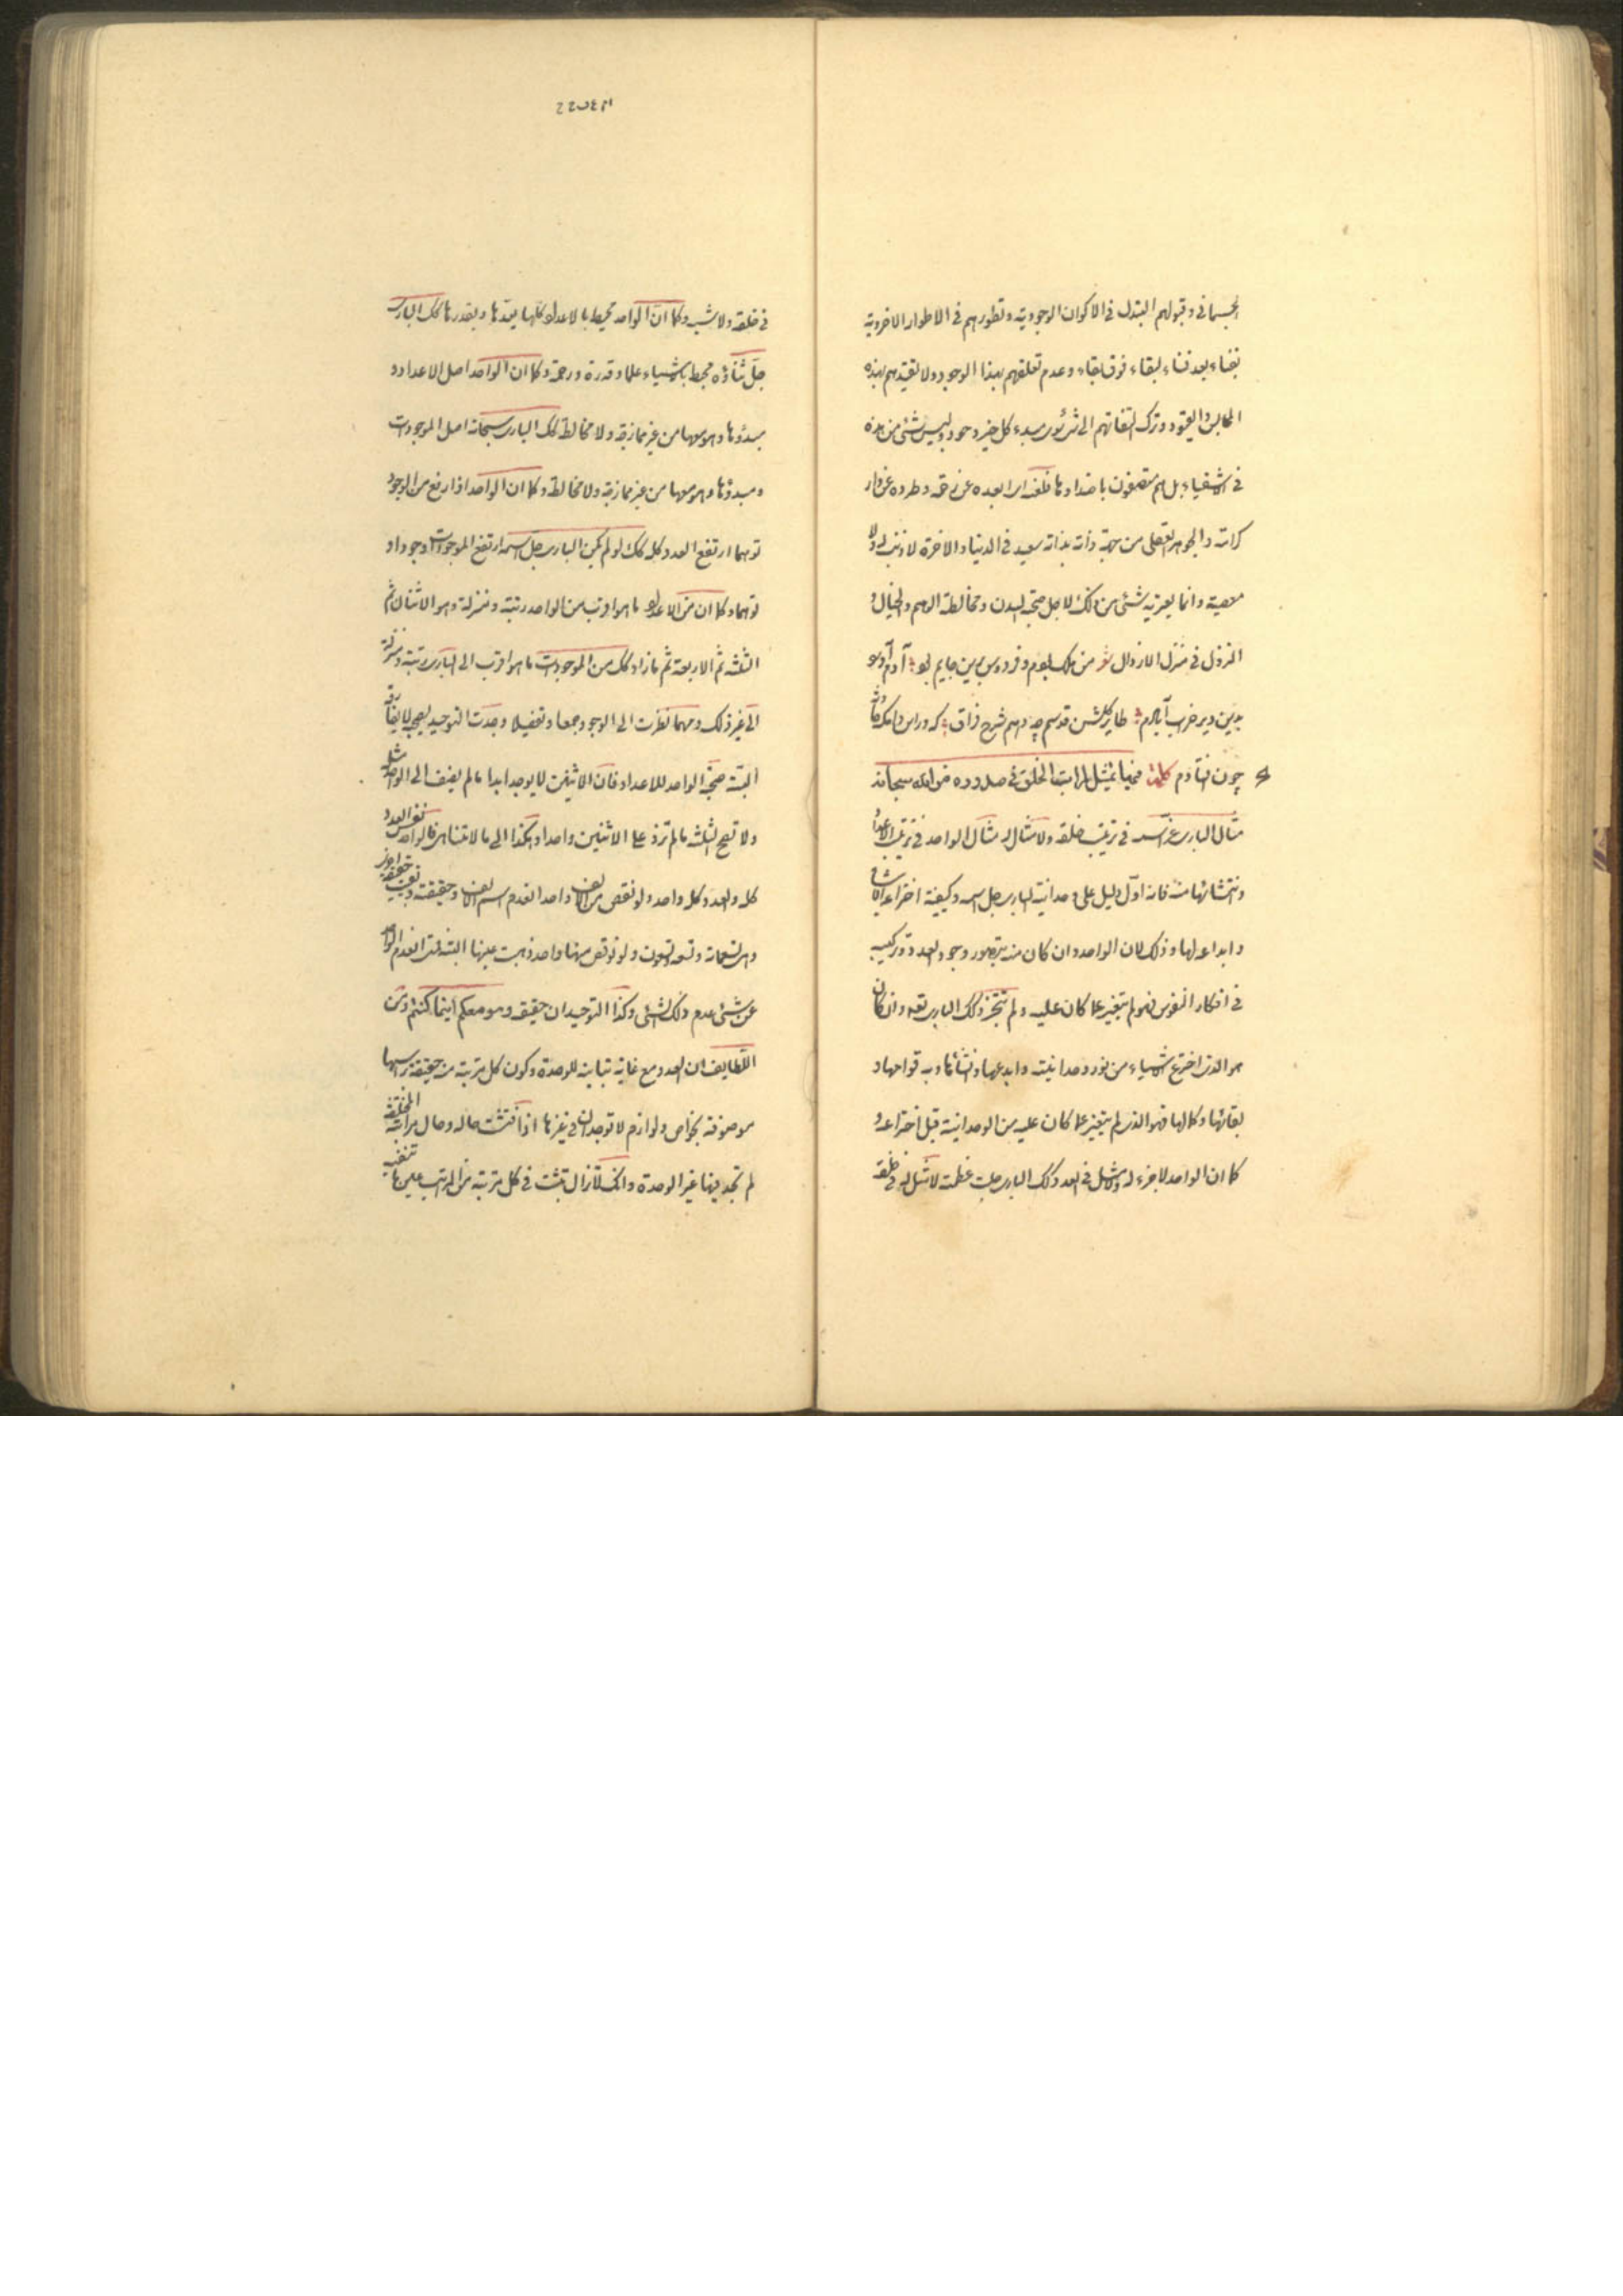 الجسمانی و قبولهم التبدل فی الاکوان الوجودیة و تطورهم فی الاطوار الاخرویة
بفناء بعد فناء لبقاء فوق بقاء و عدم تعلقهم بهذا الوجود ولا تقیدهم بهذه
الملابس والقیود و ترک التفاتهم الی شیء سوی مبدء کل خیر و جود ولیس شئ من هذه
فی الاشقیاء بل هم متصفون باضدادها فلعنه ابعده عن رحمته وطرده عن دار
کرامته والجوهر العقلی من جهة ذاته بذاته سعید فی الدنیا والاخرة لا ذنب له ولا
معصیة وانما یعتریه شئ من ذلک لاجل صحبة البدن ومخالطة الوهم والخیال و
النزول فی منزل الارذال شعر من ملک بودم و فردوس برین جایم بود آدم آورد
بدین دیر خراب آبادم طایر گلشن قدسم چه دهم شرح فراق که در این دامگه حادثه
چون افتادم کلمة فیها تمثیل لمراتب الخلق فی صدوره من الله سبحانه
مثال الباری عز اسمه فی ترتیب خلقه ولا مثال له مثال الواحد فی ترتیب الاعداد
ونشأتها منه فانه اول دلیل علی وحدانیة الباری جل اسمه وکیفیة اختراعه الاشیاء
وابداعه لها وذلک لان الواحد وان کان منه یتصور وجود العدد وترکیبه
فی افکار النفوس فهو لم یتغیر عما کان علیه ولم یتجز کذلک الباری تعه وان کان
هو الذی اخترع الاشیاء من نور وحدانیته وابدعها وانشأها وبه قوامها و
بقائها وکمالها فهو الذی لم یتغیر عما کان علیه من الوحدانیة قبل اختراعه و
کما ان الواحد لا جزء له ولا مثل فی العدد کذلک الباری جلت عظمته لا مثل له فی خلقه
فی خلقه ولا شبه وکما ان الواحد محیط بالاعداد کلها یعدها ویقدرها کذلک الباری
جل ثناؤه محیط بالاشیاء علما وقدرة ورحمة وکما ان الواحد اصل الاعداد و
مبدؤها وهو معها من غیر ممازجة ولا مخالطة کذلک الباری سبحانه اصل الموجودات
ومبدؤها وهو معها من غیر ممازجة ولا مخالطة وکما ان الواحد اذا رفع من الوجود
توهما ارتفع العدد کله کذلک لو لم یکن الباری جل اسمه ارتفع الموجودات وجودا و
توهما وکما ان من الاعداد ما هو اقرب من الواحد رتبة ومنزلة وهو الاثنان ثم
الثلثة ثم الاربعة ثم ما زاد کذلک من الموجودات ما هو اقرب الی الباری رتبة ومنزلة
الی غیر ذلک ومهما نظرت الی الوجود جمعا وتفصیلا وجدت التوحید یصحبه لا یفارقه
البتة صحبة الواحد للاعداد فان الاثنین لا یوجد ابدا ما لم یضف الی الواحد مثله
ولا تصح الثلثة ما لم تزد علی الاثنین واحدا وهکذا الی ما لا یتناهی فالواحد نفس العدد
کله والعدد کله واحد ولو نقص من الالف واحد انعدم اسم الالف وحقیقته وبقیت حقیقة اخری
وهی تسعمائة وتسعة وتسعون ولو نقص منها واحد ذهبت عینها البتة فمتی انعدم الواحد
عن شئ عدم ذلک الشئ وکذا التوحید ان حققته وهو معکم اینما کنتم ومن
اللطایف ان العدد مع غایة تباینه للوحدة وکون کل مرتبة منه حقیقة براسها
موصوفة بخواص ولوازم لا توجدان فی غیرها اذا فتشت حاله وحال مراتبه المختلفة
لم تجد فیها غیر الوحدة وانک لا تزال تثبت فی کل مرتبة من المراتب عین ما تنفیه